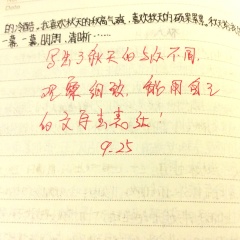 的冷酷。我喜欢秋天的秋高气爽，喜欢秋天的硕果累累。秋天
一幕一幕，明朗、清晰……
写出了秋天的与众不同，
观察细致，能用自己
的文字去表达！
9.25